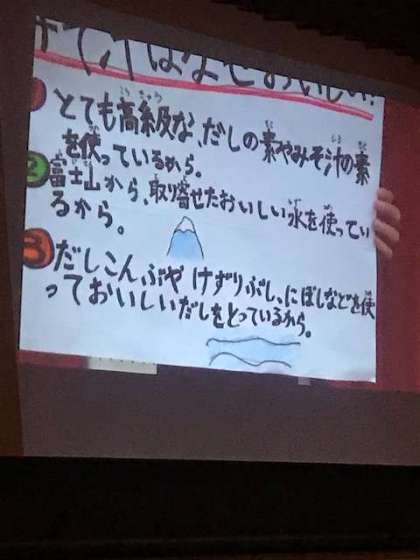 汁はなぜおいしい?
1 とても高級な、だしの素やみそ汁の素
を使っているから。
2 富士山から、取り寄せたおいしい水を使ってい
るから。
3 だしこんぶや けずりぶし、にぼしなどを使
っておいしいだしをとっているから。